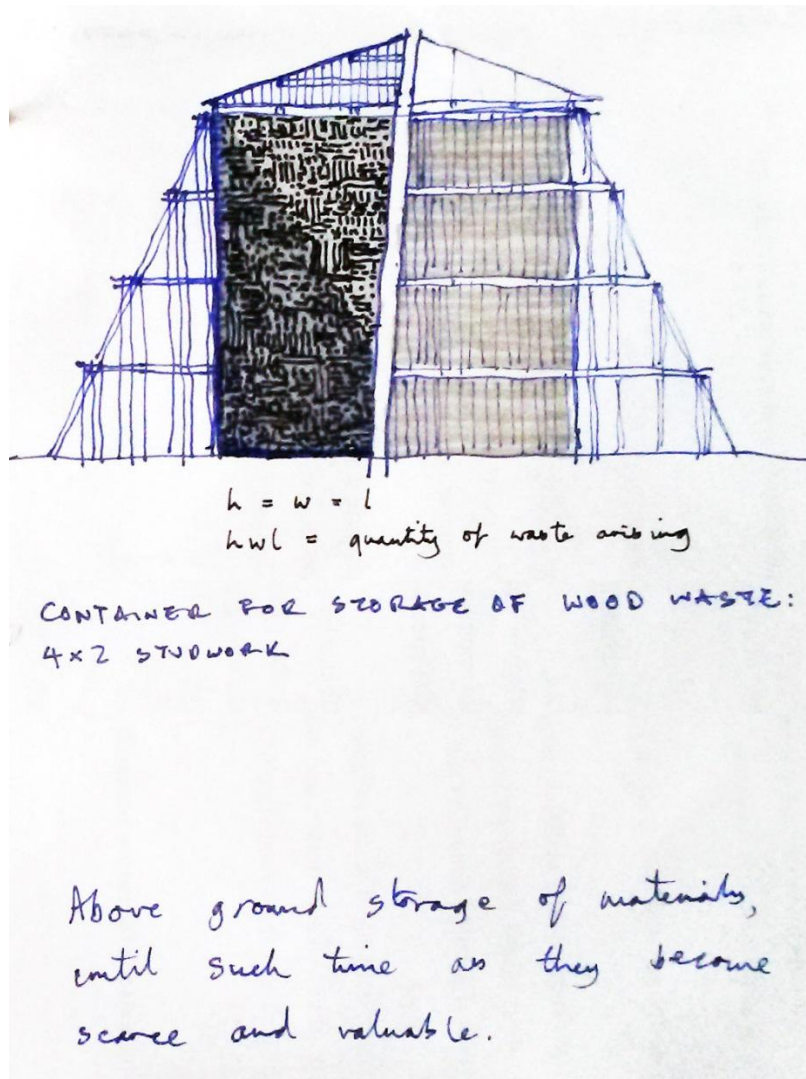 h = w = l
hwl = quantity of waste arising
CONTAINER FOR STORAGE OF WOOD WASTE:
4x2 STUDWORK
Above ground storage of materials,
until such time as they become
scarce and valuable.